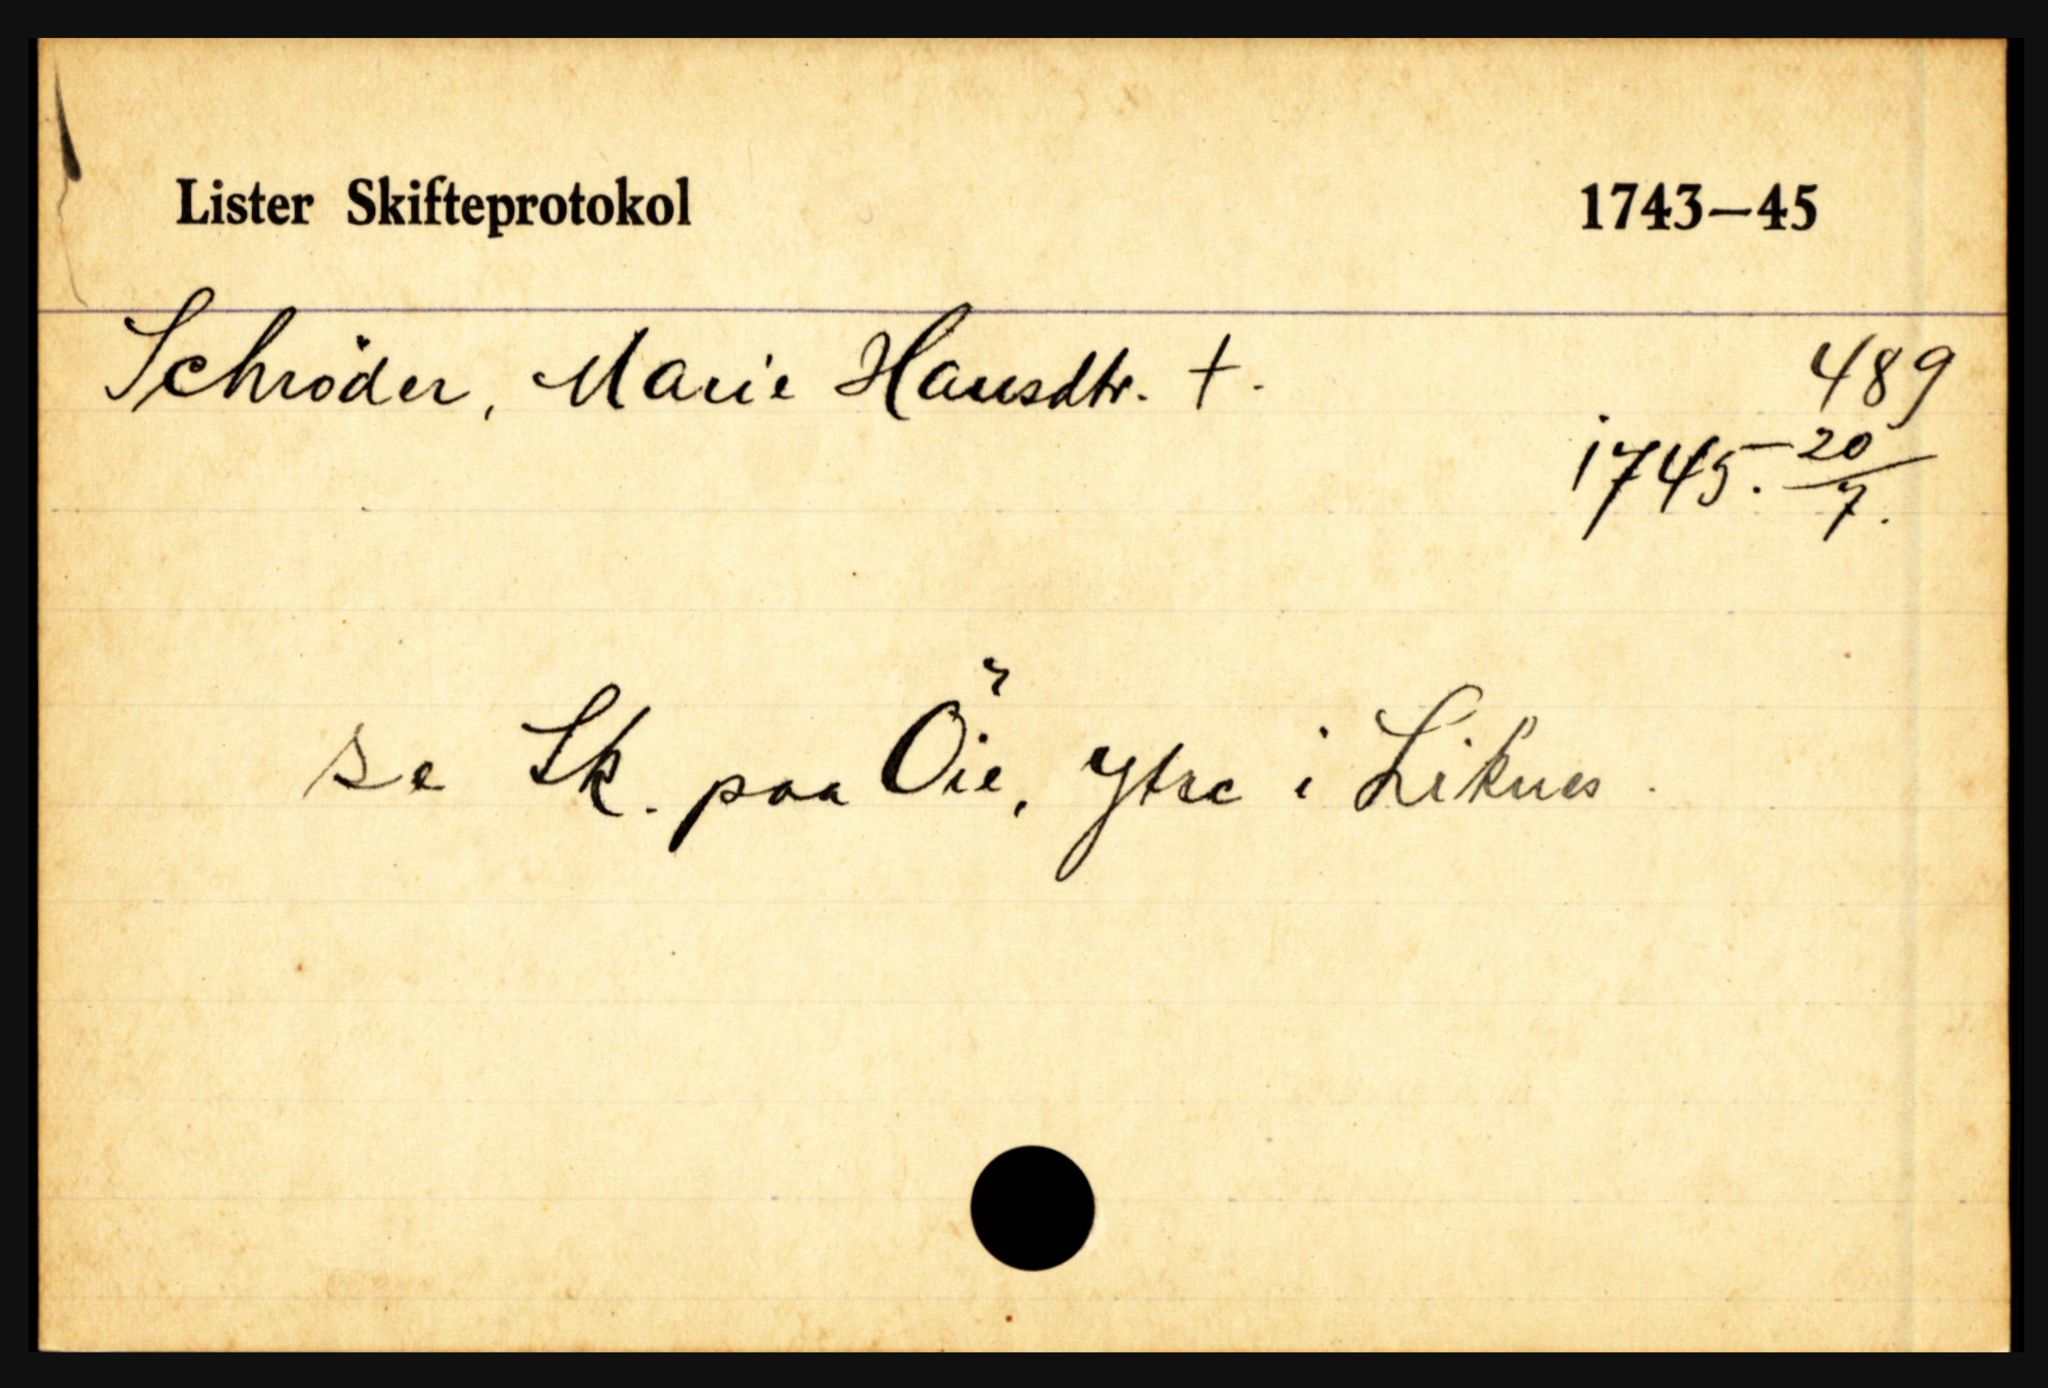 Lister Skifteprotokol 1743—45
Schröder, Marie Hansdtr. †. 489
1745. 20/7.
se Sk. paa Öie, ytre i Liknes.